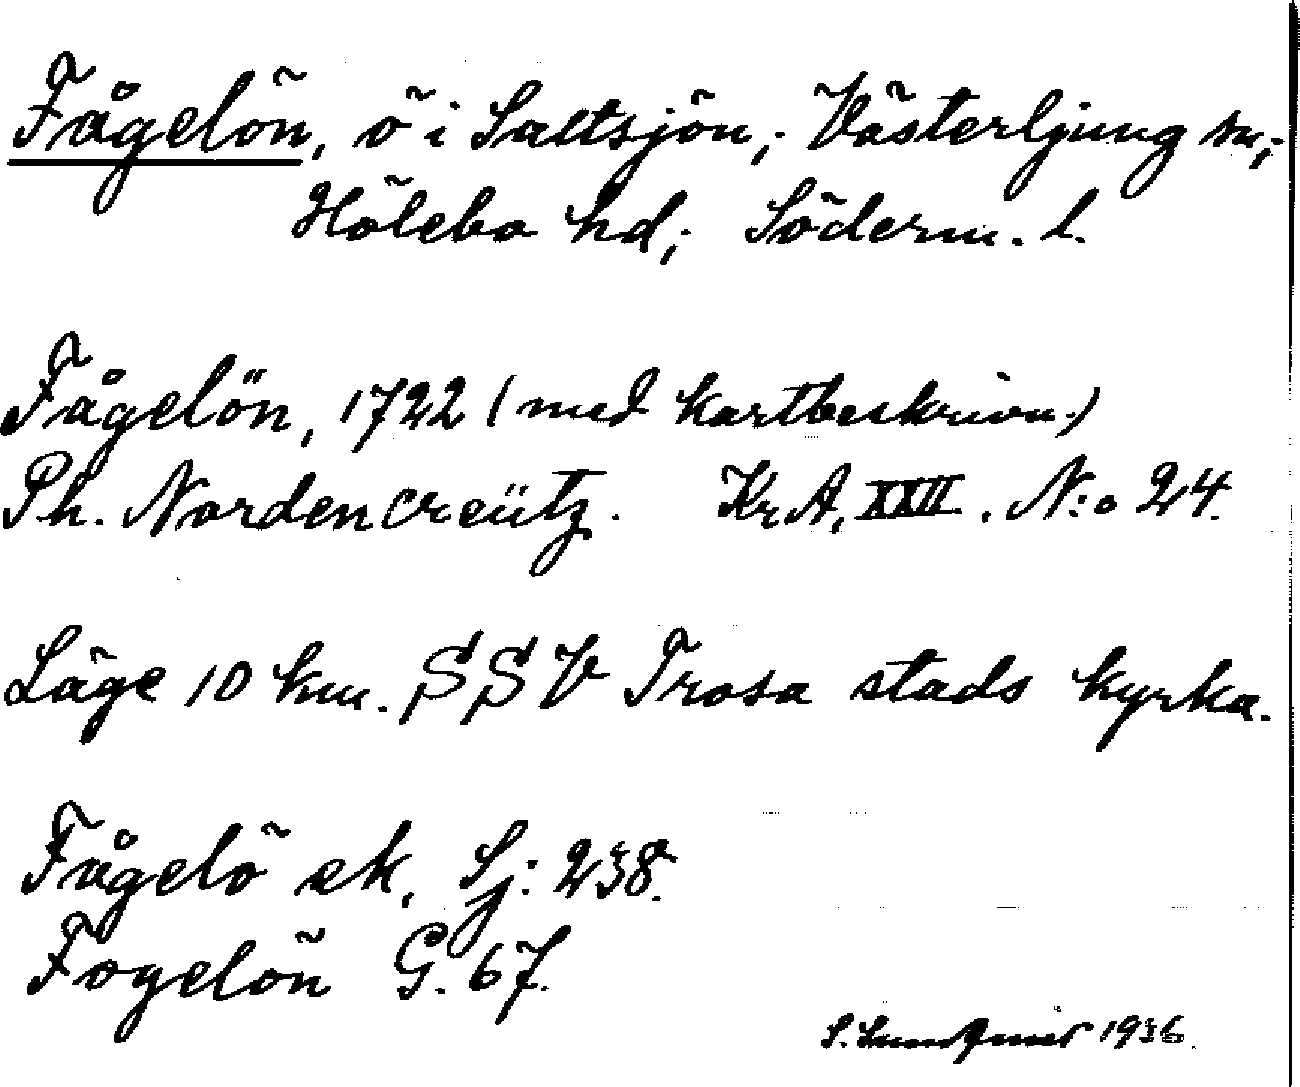 Fågelön, ö i Saltsjön; Västerljung sn;
Hölebo hd; Söderm. l.
Fågelön, 1722 (med kartbeskrivn.)
Ph. Nordencreütz. Kr.A. XXII. N:o 24.
Läge 10 km. SSV Trosa stads kyrka.
Fågelö ek, Sj: 238.
Fogelön G. 67.
S. Sundqvist 1936.